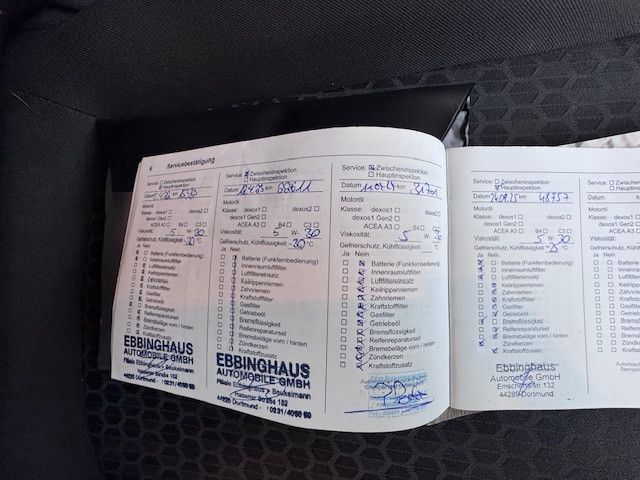 6 Servicebestätigung
Service: Zwischeninspektion
Hauptinspektion
Datum km
Motoröl
Klasse: dexos1 dexos2
dexos1 Gen2
ACEA A3 B4 C3
Viskosität: 5 W- 30
Gefrierschutz, Kühlflüssigkeit -30 °C
Ja Nein
Batterie (Funkfernbedienung)
Innenraumluftfilter
Luftfiltereinsatz
Keilrippenriemen
Zahnriemen
Kraftstofffilter
Gasfilter
Getriebeöl
Bremsflüssigkeit
Reifenreparaturset
Bremsbeläge vorn / hinten
Zündkerzen
Kraftstoffzusatz
EBBINGHAUS
AUTOMOBILE GMBH
44225 Dortmund
Service: Zwischeninspektion
Hauptinspektion
Datum km 22611
Motoröl
Klasse: dexos1 dexos2
dexos1 Gen2
ACEA A3 B4 C3
Viskosität: 5 W- 30
Gefrierschutz, Kühlflüssigkeit -30 °C
Ja Nein
Batterie (Funkfernbedienung)
Innenraumluftfilter
Luftfiltereinsatz
Keilrippenriemen
Zahnriemen
Kraftstofffilter
Gasfilter
Getriebeöl
Bremsflüssigkeit
Reifenreparaturset
Bremsbeläge vorn / hinten
Zündkerzen
Kraftstoffzusatz
EBBINGHAUS
AUTOMOBILE GMBH
Service: Zwischeninspektion
Hauptinspektion
Datum km 31701
Motoröl
Klasse: dexos1 dexos2
dexos1 Gen2
ACEA A3 B4 C3
Viskosität: 5 W-
Gefrierschutz, Kühlflüssigkeit
Ja Nein
Batterie (Funkfernbedienung)
Innenraumluftfilter
Luftfiltereinsatz
Keilrippenriemen
Zahnriemen
Kraftstofffilter
Gasfilter
Getriebeöl
Bremsflüssigkeit
Reifenreparaturset
Bremsbeläge vorn / hinten
Zündkerzen
Kraftstoffzusatz
Service: Zwischeninspektion
Hauptinspektion
Datum km 48757
Motoröl
Klasse: dexos1 dexos2
dexos1 Gen2
ACEA A3 B4 C3
Viskosität: 5 W- 30
Gefrierschutz, Kühlflüssigkeit °C
Ja Nein
Batterie (Funkfernbedienung)
Innenraumluftfilter
Luftfiltereinsatz
Keilrippenriemen
Zahnriemen
Kraftstofffilter
Gasfilter
Getriebeöl
Bremsflüssigkeit
Reifenreparaturset
Bremsbeläge vorn / hinten
Zündkerzen
Kraftstoffzusatz
Ebbinghaus
Automobile GmbH
Emscherstr 132
44289 Dortmund
Service:
Datum
Motoröl
Klasse:
Viskosität:
Gefrierschutz,
Ja Nein